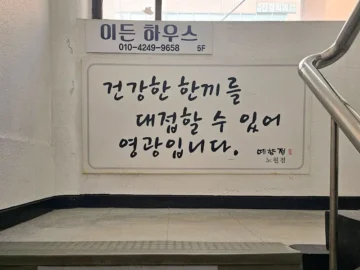 이든 하우스
010-4249-9658 5F
건강한 한끼를
대접할 수 있어
영광입니다.
노원점